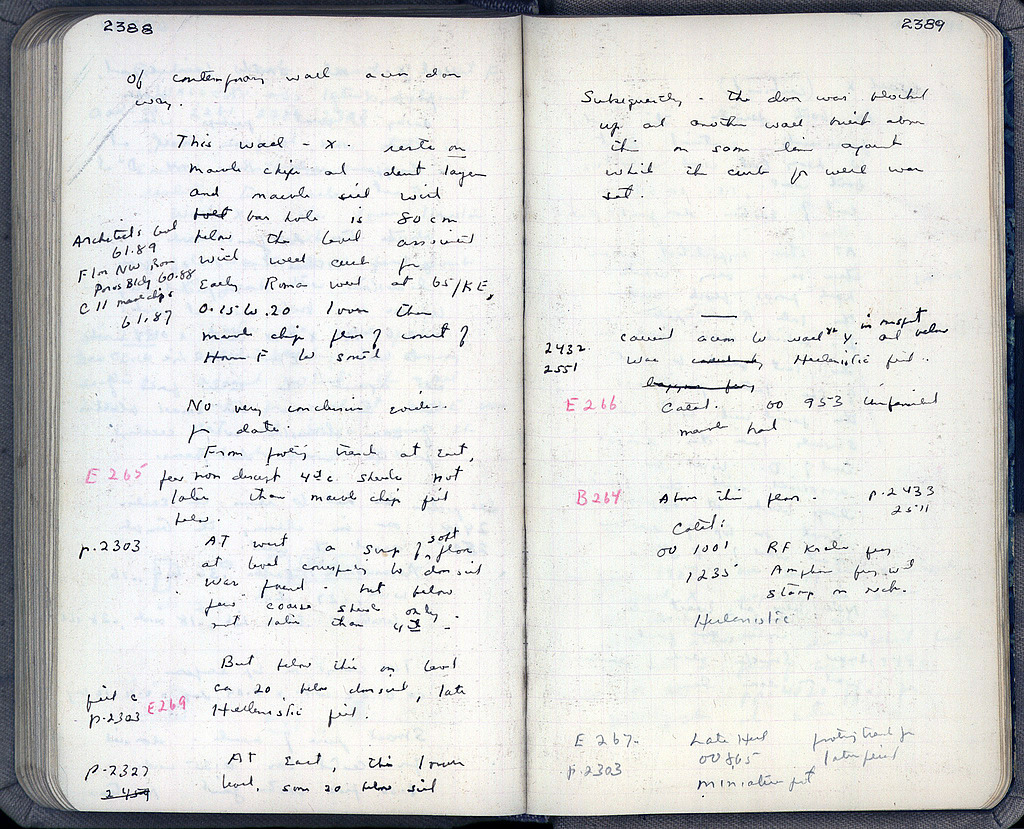 2388
Of contemporary wall across door
way.
This wall - X. rests on
marble chips and dent layer
and marble sill with
bar hole is 80 cm
below the level associated
with well curb for
Early Roman well at 65/KE,
0.15 to .20 lower than
marble chip floor of court of
House F to south
Architect's level
61.89
Floor NW room
Poros Bldg 60.88
C 11 marble chips
61.87
No very conclusive evidence
for date.
From footing trench at East,
E 265 few non descript 4th c. sherds not
later than marble chip fill
below.
p. 2303 At west a strip of soft floor
at level corresponding to door sill
was found - but below
few coarse sherds only
not later than 4th -
But below this on level
ca 20 below doorsill, late
Hellenistic fill.
fill c
p. 2303 E 269
p. 2327 At East, this lower
2459 level, some 20 below sill
2389
Subsequently - the door was blocked
up and another wall built above
this on same line against
which the curb for well was
set.
carried across to wall Y. and below
2432 was Hellenistic fill..
2551
E 266 Catal. 00 953 unfinished
marble head
B 264 Above this floor. p. 2433
2511
Catal:
00 1001 RF Krater frag
1235 Amphora frag with
stamp on neck.
Hellenistic
E 267. Late Hell footing trench for
p. 2303 00 865 later period
miniature pot